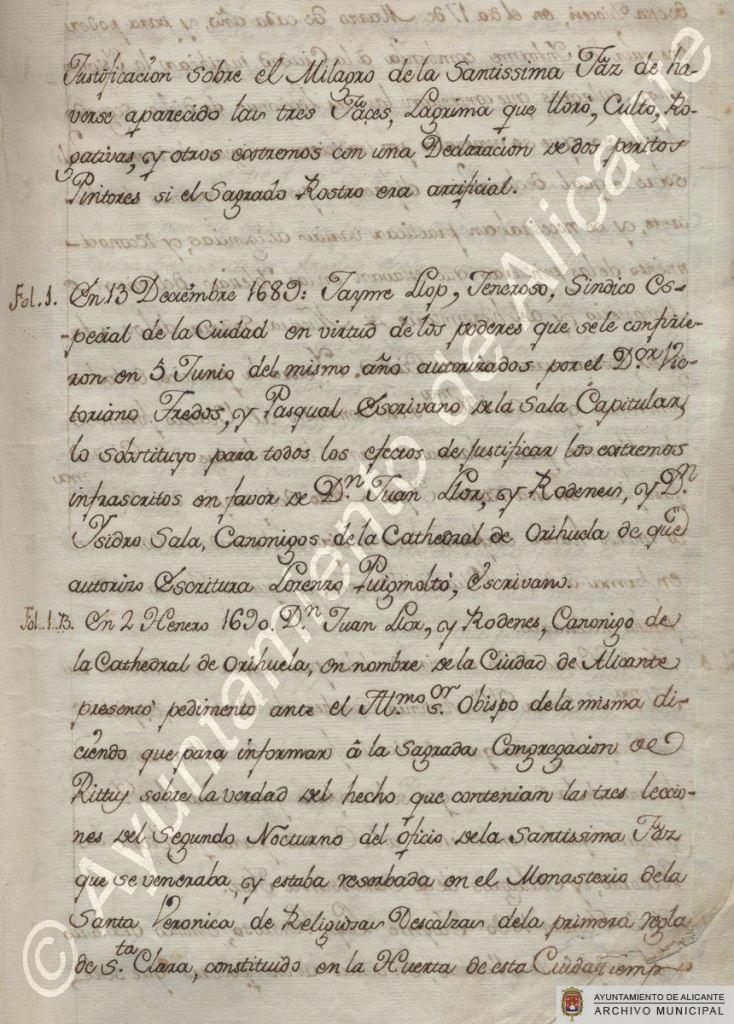 Justificacion sobre el Milagro de la Santissima Faz de ha-
verse aparecido las tres Faces, Lagrima que lloró, Culto, Ro-
gativas, y otros extremos con una Declaracion de dos peritos
Pintores si el Sagrado Rostro era artificial.
Fol. 1. En 13 Deciembre 1689: Jayme Llop, Generoso, Sindico Es-
-pecial de la Ciudad en virtud de los poderes que sele confirie-
ron en 5 Junio del mismo año autorizados por el Dor. Vic-
toriano Fredos, y Pasqual Escrivano de la Sala Capitular,
lo sobstituyo para todos los efectos de justificar los extremos
infrascritos en favor de Dn. Juan Llor, y Rodenes, y Dn.
Ysidro Sala, Canonigos de la Cathedral de Orihuela de que
autorizo Escritura Lorenzo Puigmoltó, Escrivano.
Fol. 1. B. En 2 Henero 1690. Dn. Juan Llor, y Rodenes, Canonigo de
la Cathedral de Orihuela, en nombre de la Ciudad de Alicante
presentó pedimento ante el Yll.mo Sor. Obispo de la misma di-
ciendo que para informar â la Sagrada Congregacion de
Rittus sobre la verdad del hecho que contenian las tres leccio-
nes del Segundo Nocturno del oficio dela Santissima Faz
que se veneraba, y estaba reserbada en el Monasterio dela
Santa Veronica de Religiosas Descalzas dela primera regla
de Sta. Clara, constituido en la Huerta de esta Ciudad,
© Ayuntamiento de Alicante
AYUNTAMIENTO DE ALICANTE
ARCHIVO MUNICIPAL